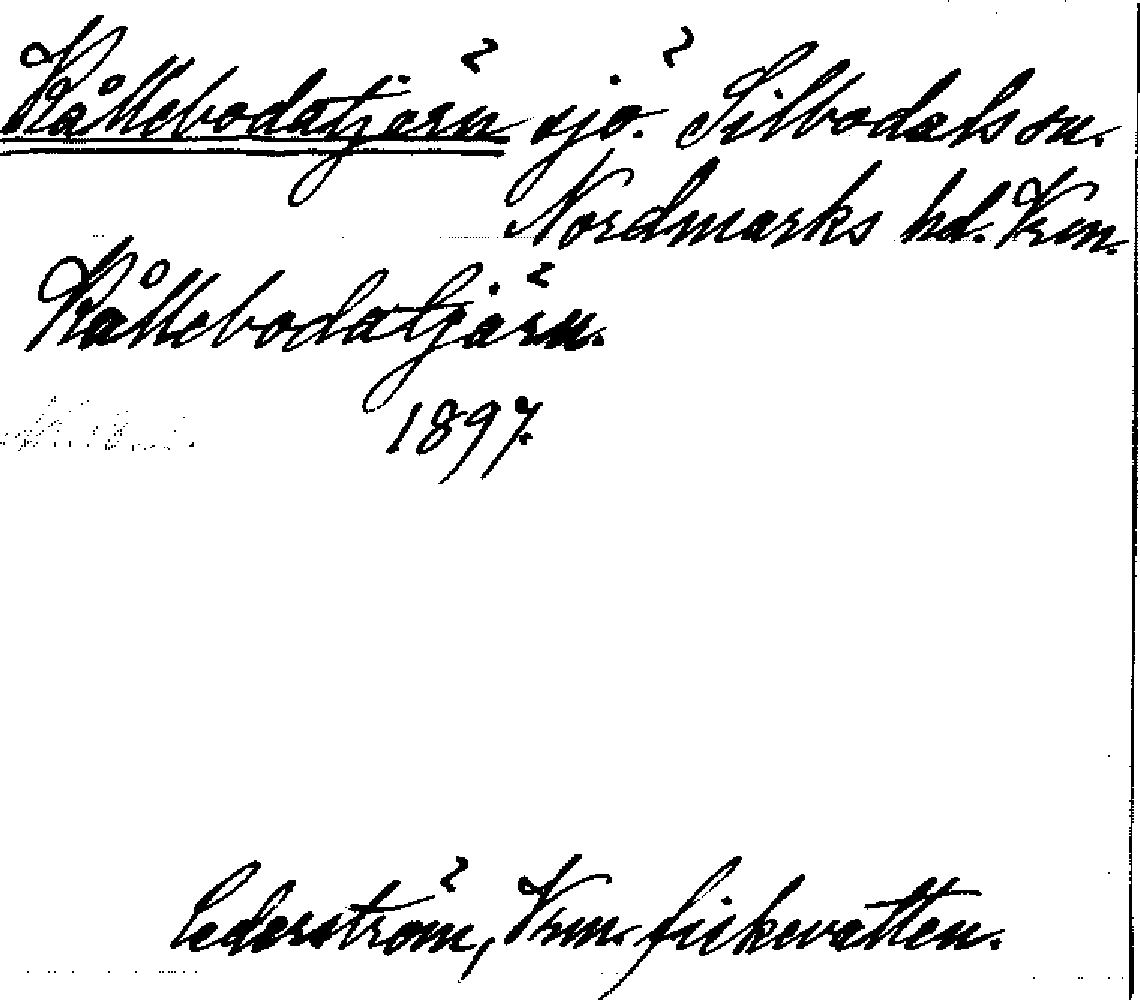 Kållebodatjärn sjö. Silbodals sn.
Nordmarks hd. Vrm.
Kållebodatjärn.
1897.
Cederström, Vrm. fiskevatten.